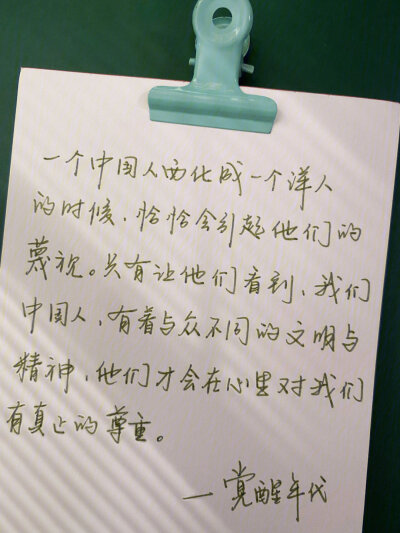 一个中国人西化成一个洋人
的时候、恰恰会引起他们的
蔑视。只有让他们看到、我们
中国人、有着与众不同的文明与
精神、他们才会在心里对我们
有真正的尊重。
一觉醒年代